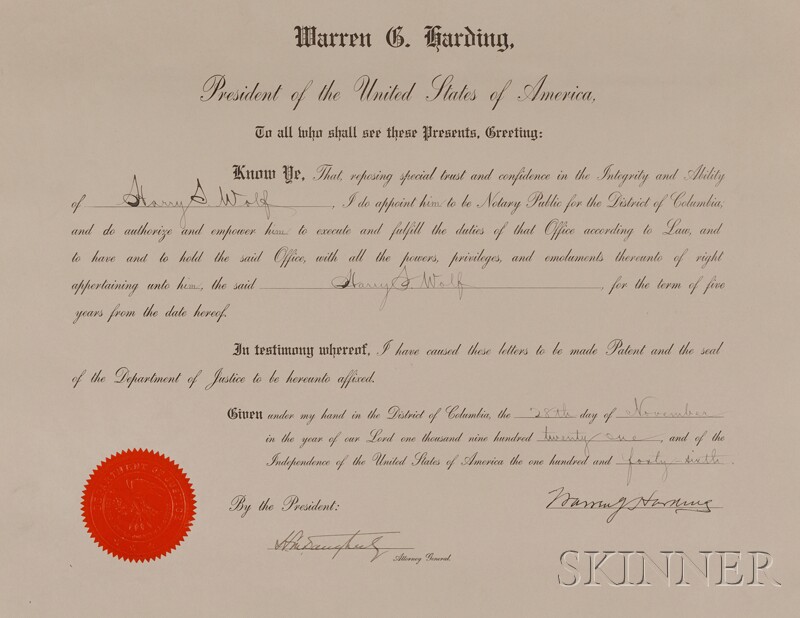 Warren G. Harding,
President of the United States of America,
To all who shall see these Presents, Greeting:
Know Ye, That, reposing special trust and confidence in the Integrity and Ability
of Harry S. Wolf, I do appoint him to be Notary Public for the District of Columbia,
and do authorize and empower him to execute and fulfill the duties of that Office according to Law, and
to have and to hold the said Office, with all the powers, privileges, and emoluments thereunto of right
appertaining unto him, the said Harry S. Wolf, for the term of five
years from the date hereof.
In testimony whereof, I have caused these letters to be made Patent and the seal
of the Department of Justice to be hereunto affixed.
Given under my hand in the District of Columbia, the 28th day of November
in the year of our Lord one thousand nine hundred twenty one, and of the
Independence of the United States of America the one hundred and forty-sixth.
By the President:
Warren G Harding
H M Daugherty
Attorney General.
SKINNER